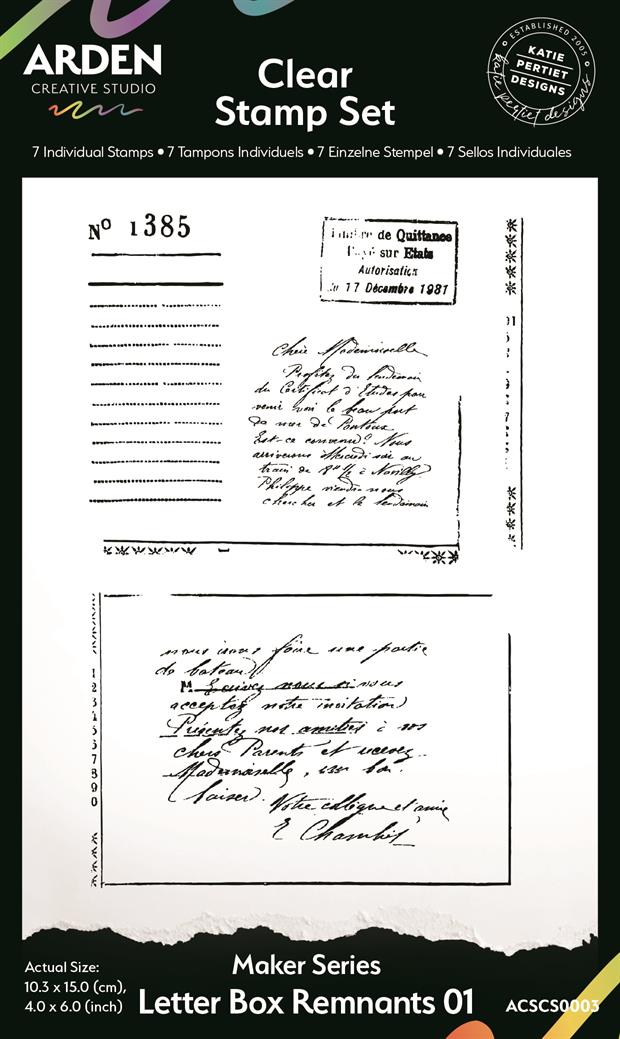 ARDEN
CREATIVE STUDIO
Clear
Stamp Set
ESTABLISHED 2005
KATIE
PERTIET
DESIGNS
katie pertiet designs
7 Individual Stamps • 7 Tampons Individuels • 7 Einzelne Stempel • 7 Sellos Individuales
Nº 1385
de Quittance
sur Etats
Autorisation
du 17 Décembre 1931
Chère Mademoiselle
Profitez du lendemain
du Certificat d'Etudes pour
venir voir le beau port
de mer de Pontoux
Est-ce convenu? Nous
arriverons Mercredi soir au
train de 8h ½ à Neuilly
Philippe viendra nous
chercher et le lendemain
nous irons faire une partie
de bateau
M. nous si vous
acceptez notre invitation
Présentez nos amitiés à vos
chers Parents et recevez
Mademoiselle, un bon
baiser. Votre collègue et amie
E Chambet
1
2
3
4
5
6
7
8
9
0
Actual Size:
10.3 x 15.0 (cm),
4.0 x 6.0 (inch)
Maker Series
Letter Box Remnants 01
ACSCS0003